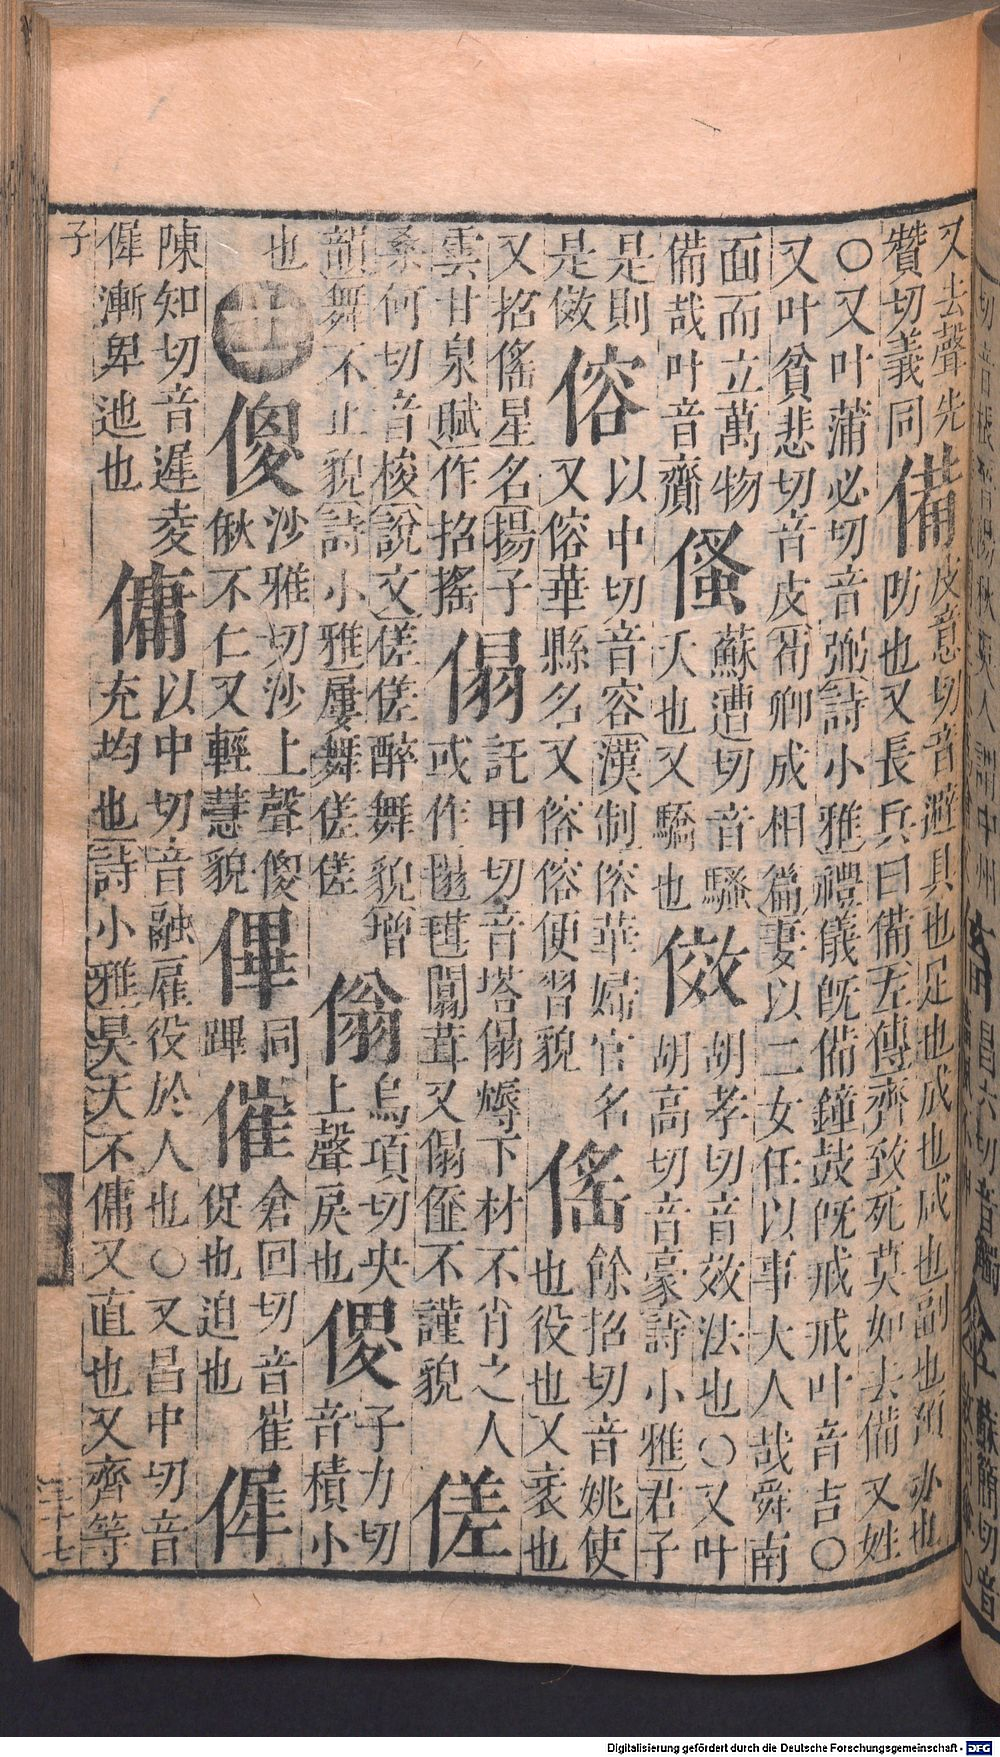 又去聲先
贊切義同
備
皮意切音避具也足也成也咸也副也預辦也
防也又長兵曰備左傳齊致死莫如去備又姓
〇又叶蒲必切音弼詩小雅禮儀旣備鐘鼓旣戒戒叶音吉〇
又叶貧悲切音皮荀卿成相篇妻以二女任以事大人哉舜南
面而立萬物
備哉叶音齎
蘇遭切音騷
大也又驕也
傚
胡孝切音效法也〇又叶
胡高切音豪詩小雅君子
是則
是傚
傛
以中切音容漢制傛華婦官名
又傛華縣名又傛傛便習貌
傜
餘招切音姚使
也役也又衺也
又招傜星名揚子
雲甘泉賦作招搖
傝
託甲切音塔傝下材不肖之人
或作闒茸又傝不謹貌
傞
桑何切音梭說文傞傞醉舞貌增
韻舞不止貌詩小雅屢舞傞傞
傟
烏項切央
上聲戾也
子力切
音積小
也
十一
傻
沙雅切沙上聲傻
偢不仁又輕慧貌
同
蹕
催
倉回切音崔
促也迫也
陳知切音遲夌
漸卑迆也
傭
以中切音融雇役於人也〇又昌中切音
充均也詩小雅昊天不傭又直也又齊等
子
二十七
Digitalisierung gefördert durch die Deutsche Forschungsgemeinschaft - DFG